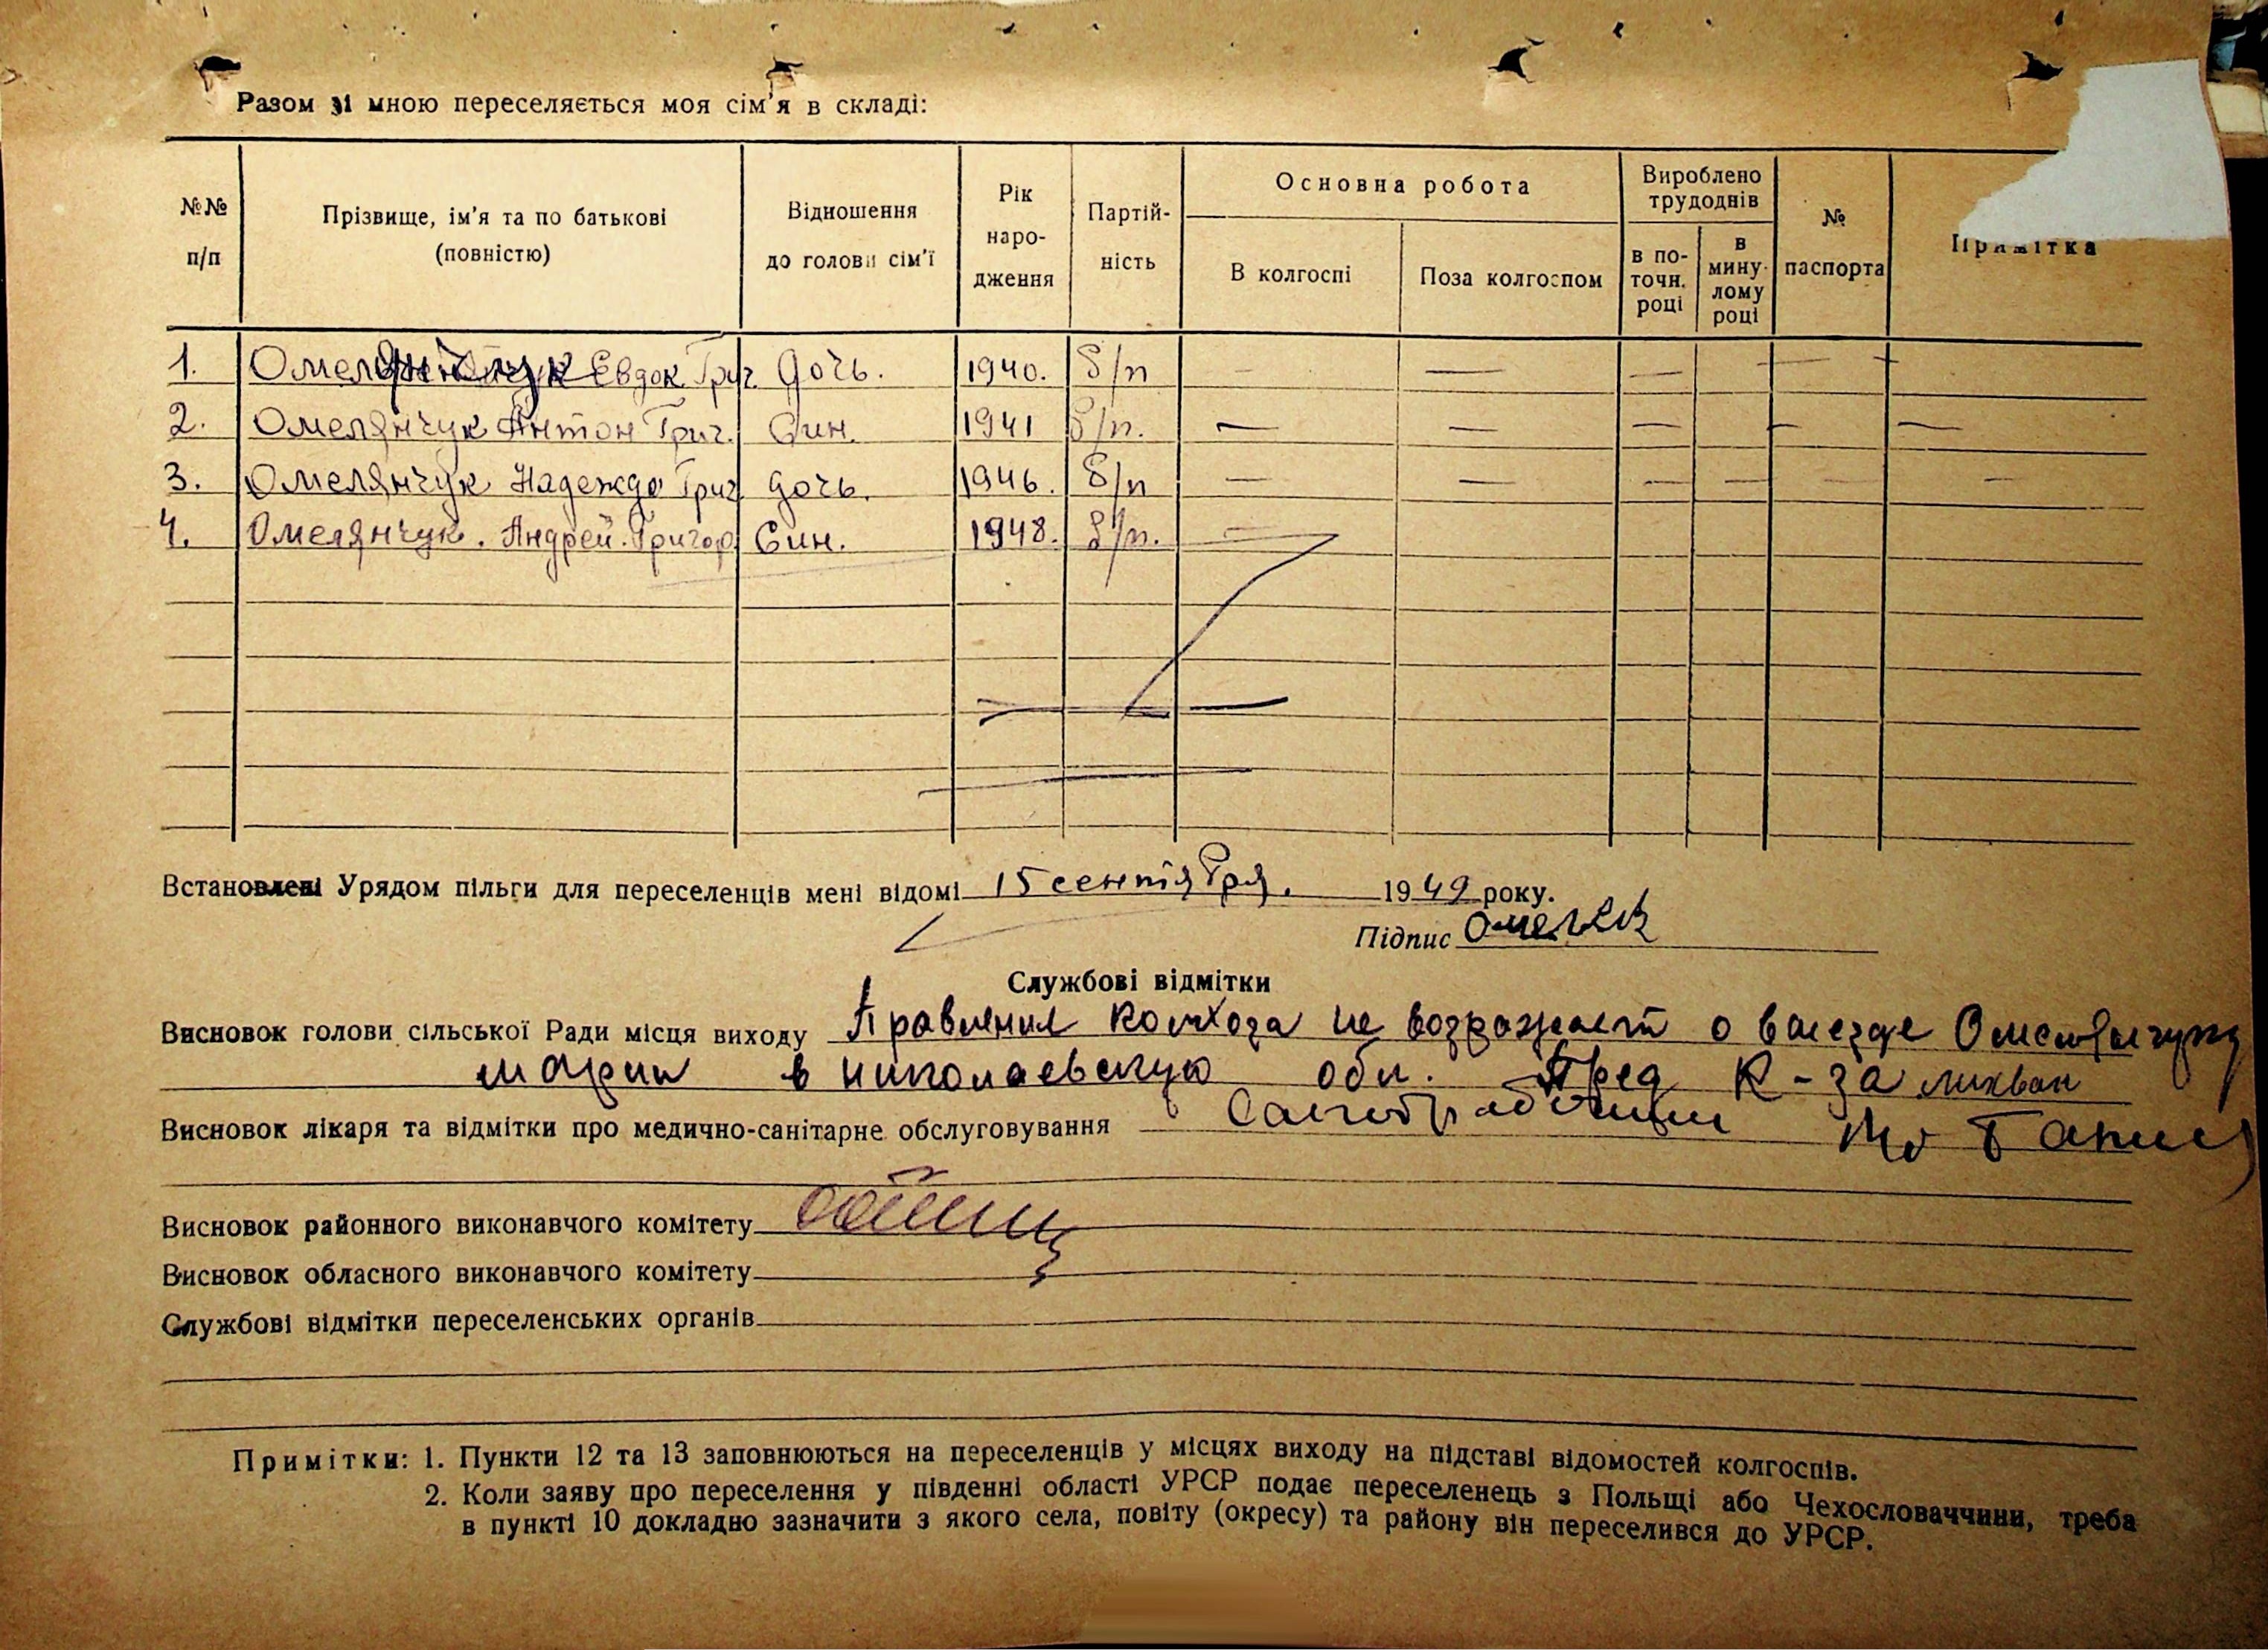 Разом зі мною переселяється моя сім'я в складі:
№№ п/п
Прізвище, ім'я та по батькові (повністю)
Відношення до голови сім'ї
Рік народження
Партійність
Основна робота
В колгоспі
Поза колгоспом
Вироблено трудоднів
в поточн. році
в минулому році
№ паспорта
Примітка
1. Омелянчук Евдок. Григ. дочь. 1940. б/п — — —
2. Омелянчук Антон Григ. Син. 1941 б/п. — — — — —
3. Омелянчук Надежда Григ. дочь. 1946. б/п — — — — —
4. Омелянчук. Андрей. Григор. Син. 1948. б/п. —
Встановлені Урядом пільги для переселенців мені відомі 15 сентября. 1949 року.
Підпис
Службові відмітки
Висновок голови сільської Ради місця виходу Правления колхоза не возражает о выезде Омелянчук
Марии в николаевскую обл. Пред к-за
Висновок лікаря та відмітки про медично-санітарне обслуговування
Висновок районного виконавчого комітету
Висновок обласного виконавчого комітету
Службові відмітки переселенських органів
Примітки: 1. Пункти 12 та 13 заповнюються на переселенців у місцях виходу на підставі відомостей колгоспів.
2. Коли заяву про переселення у південні області УРСР подає переселенець з Польщі або Чехословаччини, треба
в пункті 10 докладно зазначити з якого села, повіту (окресу) та району він переселився до УРСР.